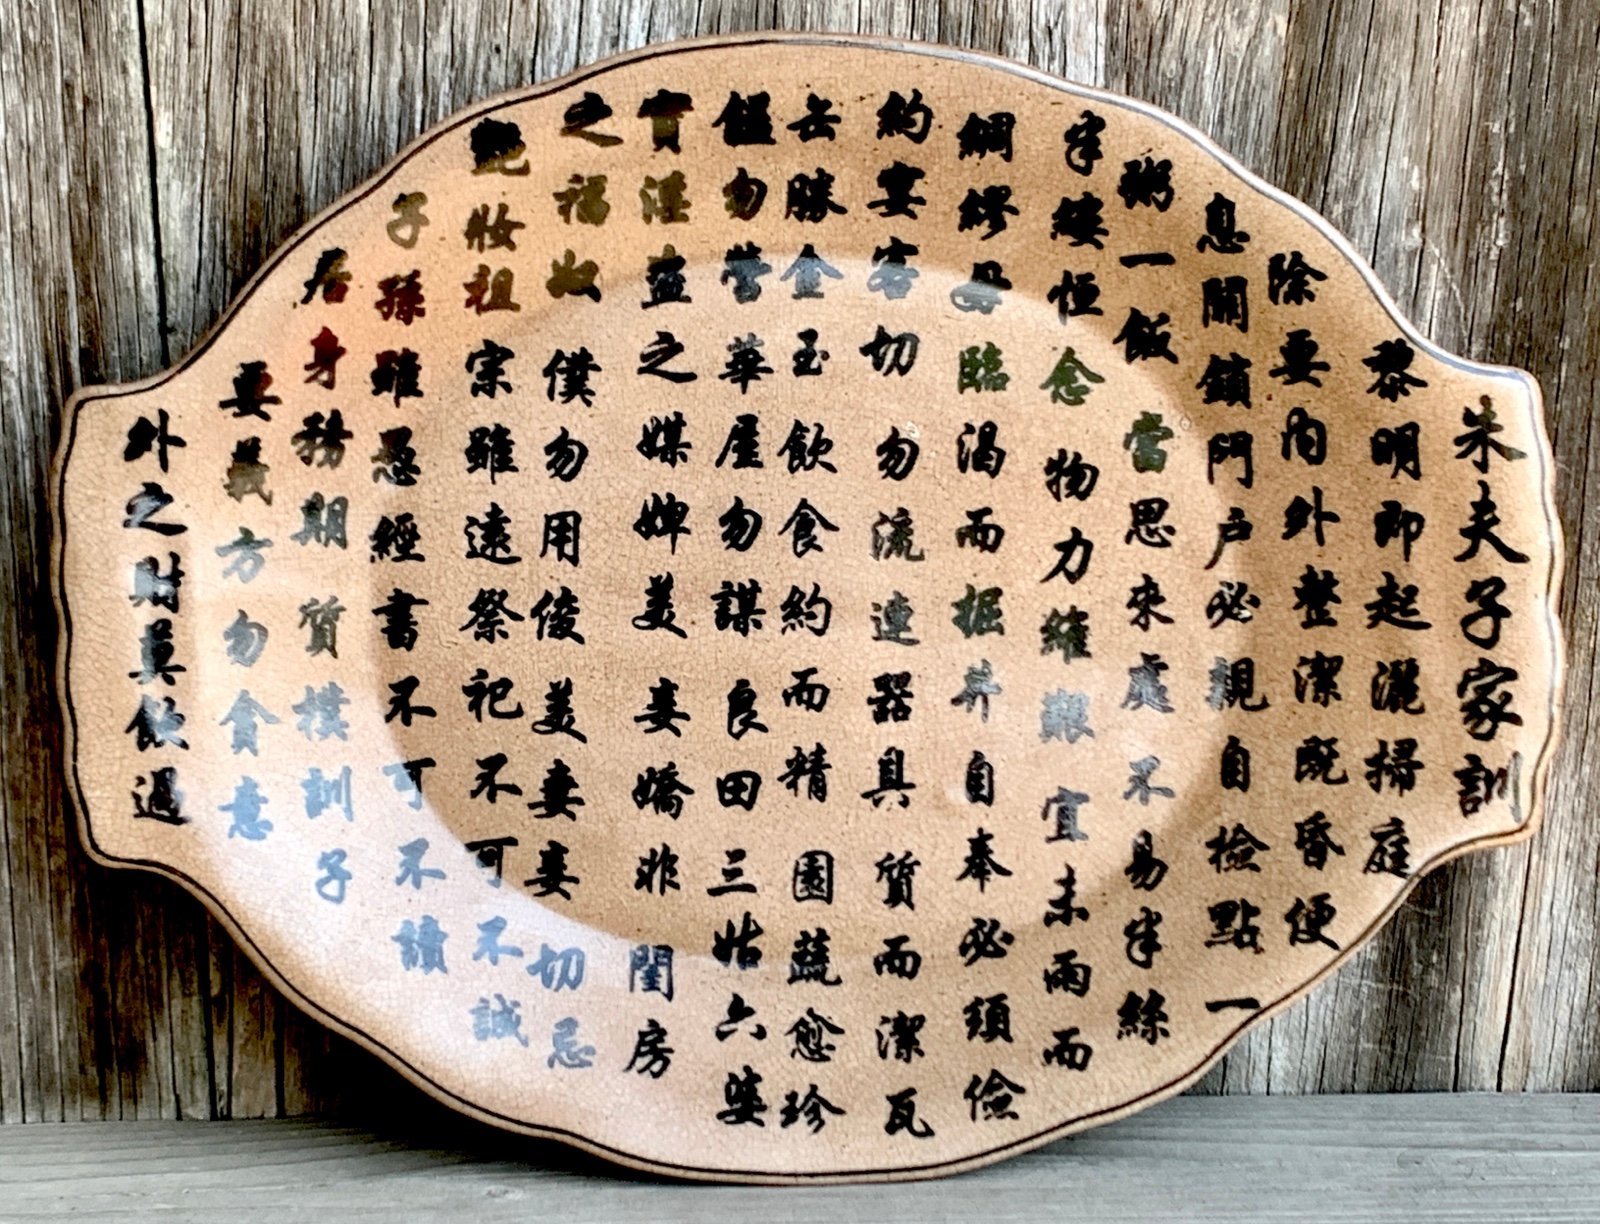 朱夫子家訓
黎明即起灑掃庭
除要內外整潔既昏便
息關鎖門戶必親自檢點一
粥一飯當思來處不易半絲
半縷恒念物力維艱宜未雨而
綢繆毋臨渴而掘井自奉必須儉
約宴客切勿流連器具質而潔瓦
缶勝金玉飲食約而精園蔬愈珍
饈勿營華屋勿謀良田三姑六婆
實淫盜之媒婢美妾嬌非閨房
之福奴僕勿用俊美妻妾切忌
艷妝祖宗雖遠祭祀不可不誠
子孫雖愚經書不可不讀
居身務期質樸訓子
要義方勿貪意
外之財莫飲過